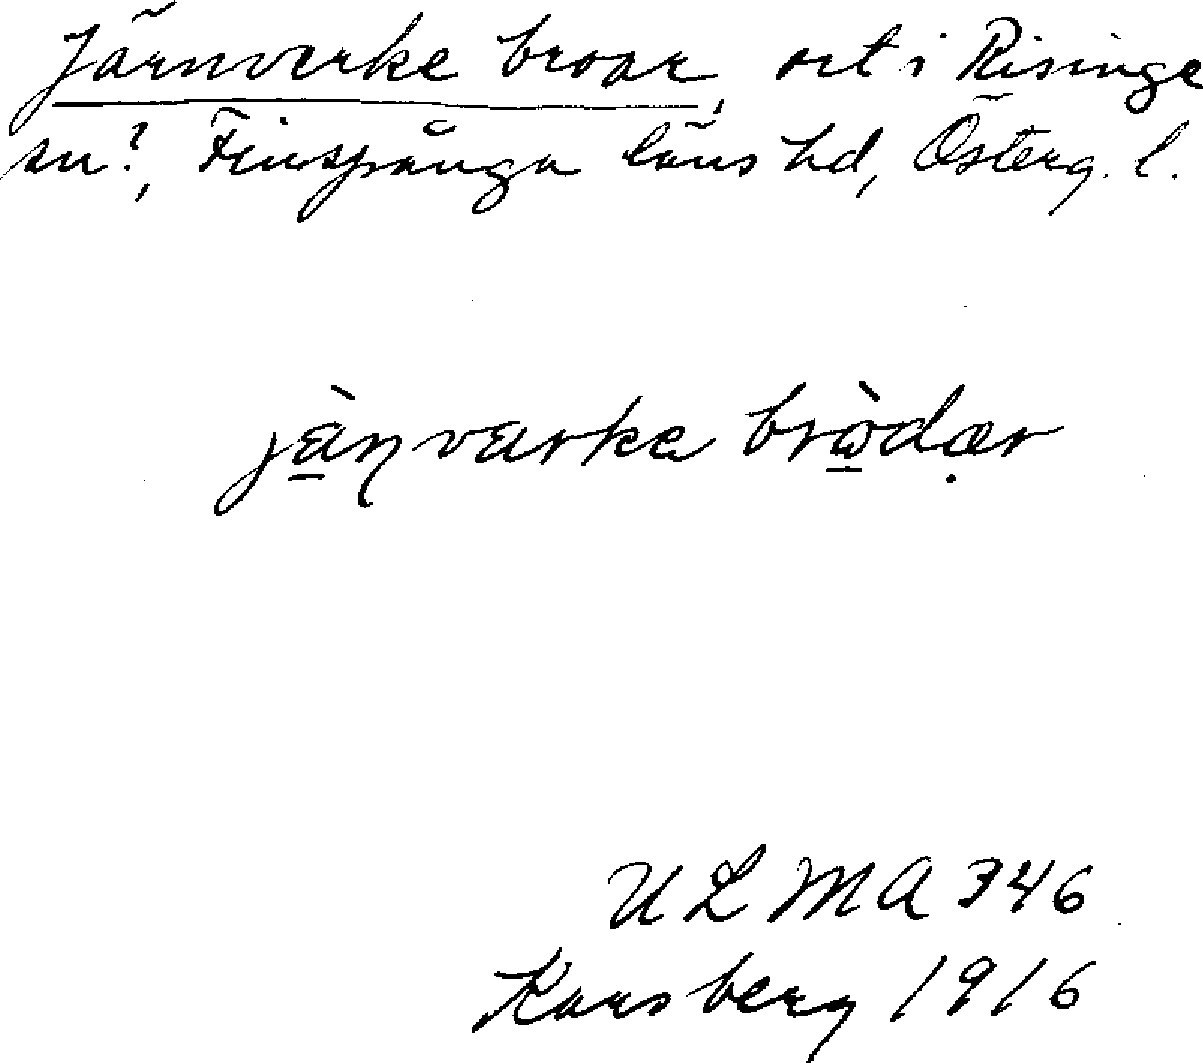 Järnverke broar, ort i Risinge
sn?, Finspånga läns hd, Österg. l.
jànvarka bròdær
ULMA 346
Karsberg 1916